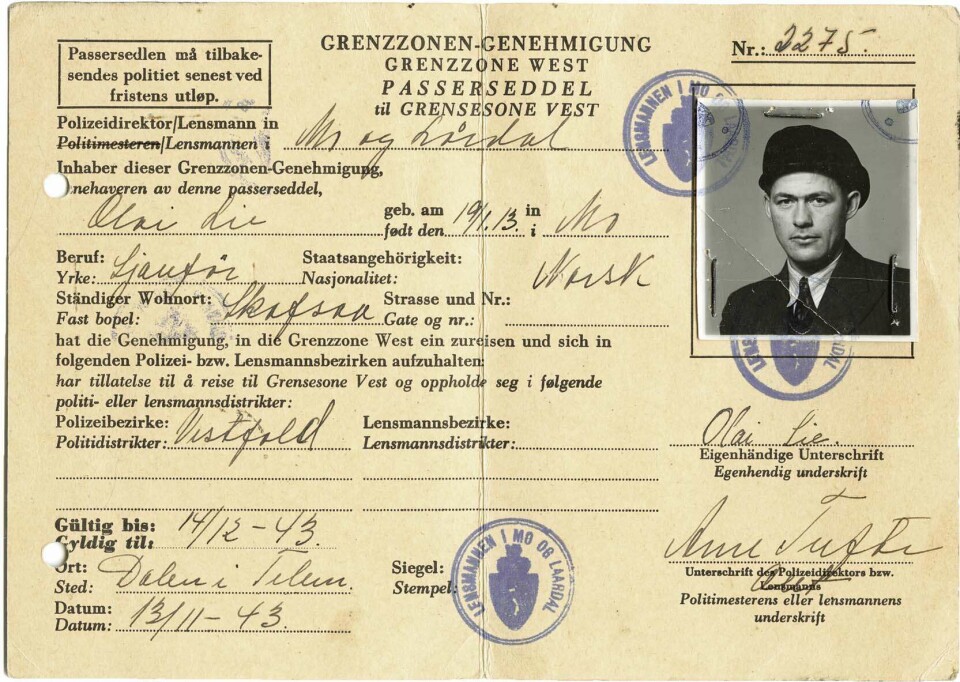 Passersedlen må tilbake-
sendes politiet senest ved
fristens utløp.
GRENZZONEN-GENEHMIGUNG
GRENZZONE WEST
PASSERSEDDEL
til GRENSESONE VEST
Nr.: 2275.
Polizeidirektor/Lensmann in
Politimesteren/Lensmannen i Mo og Lårdal
LENSMANNEN I MO OG
Inhaber dieser Grenzzonen-Genehmigung,
nnehaveren av denne passerseddel,
Olai Lie geb. am født den 19/1.13. in i Mo
Beruf: Yrke: Sjauför Staatsangehörigkeit: Nasjonalitet: Norsk
Ständiger Wohnort: Fast bopel: Skafsaa Strasse und Nr.: Gate og nr.:
hat die Genehmigung, in die Grenzzone West ein zureisen und sich in
folgenden Polizei- bzw. Lensmannsbezirken aufzuhalten:
har tillatelse til å reise til Grensesone Vest og oppholde seg i følgende
politi- eller lensmannsdistrikter:
LAARDAL
Polizeibezirke: Politidistrikter: Vestfold Lensmannsbezirke: Lensmannsdistrikter:
Olai Lie.
Eigenhändige Unterschrift
Egenhendig underskrift
Gültig bis:
Gyldig til: 14/12-43.
Ort:
Sted: Dalen i Telem.
Siegel:
Stempel:
LENSMANNEN I MO OG LAARDAL
Datum:
Datum: 13/11-43.
Arne Tufte
Unterschrift des Polizeidirektors bzw.
Lensmanns
Politimesterens eller lensmannens
underskrift